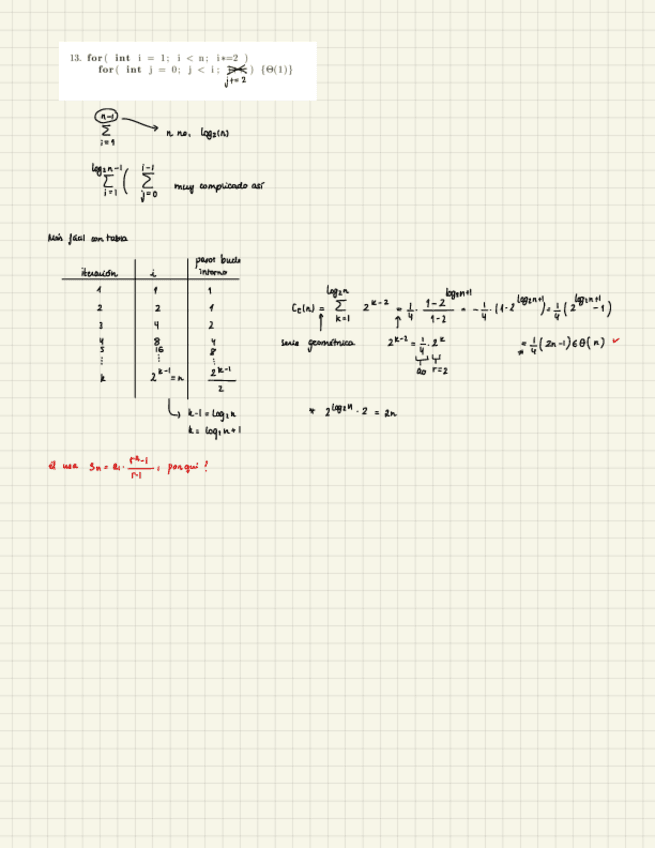 13. for( int i = 1; i < n; i*=2 )
for( int j = 0; j < i; ) {Θ(1)}
j+= 2
n-1
Σ → n no, log₂(n)
i=1
log₂n-1 i-1
Σ ( Σ muy complicado así
i=1 j=0
Más fácil con tabla
iteración | i | pasos bucle interno
1 | 1 | 1
2 | 2 | 1
3 | 4 | 2
4 | 8 | 4
5 | 16 | 8
⋮ | ⋮ | ⋮
k | 2^(k-1) = n | 2^(k-1)/2
↳ k-1 = log₂n
k = log₂n+1
Cc(n) = Σ_{k=1}^{log₂n} 2^(k-2) = 1/4 · (1-2^(log₂n+1))/(1-2) = -1/4 · (1-2^(log₂n+1)) = 1/4 (2^(log₂n+1) - 1)
serie geométrica 2^(k-2) = 1/4 · 2^k
a₀ r=2
* = 1/4 (2n-1) ∈ Θ(n) ✓
* 2^(log₂n) · 2 = 2n
él usa Sn = a₁ · (r^n-1)/(r-1), por qué?